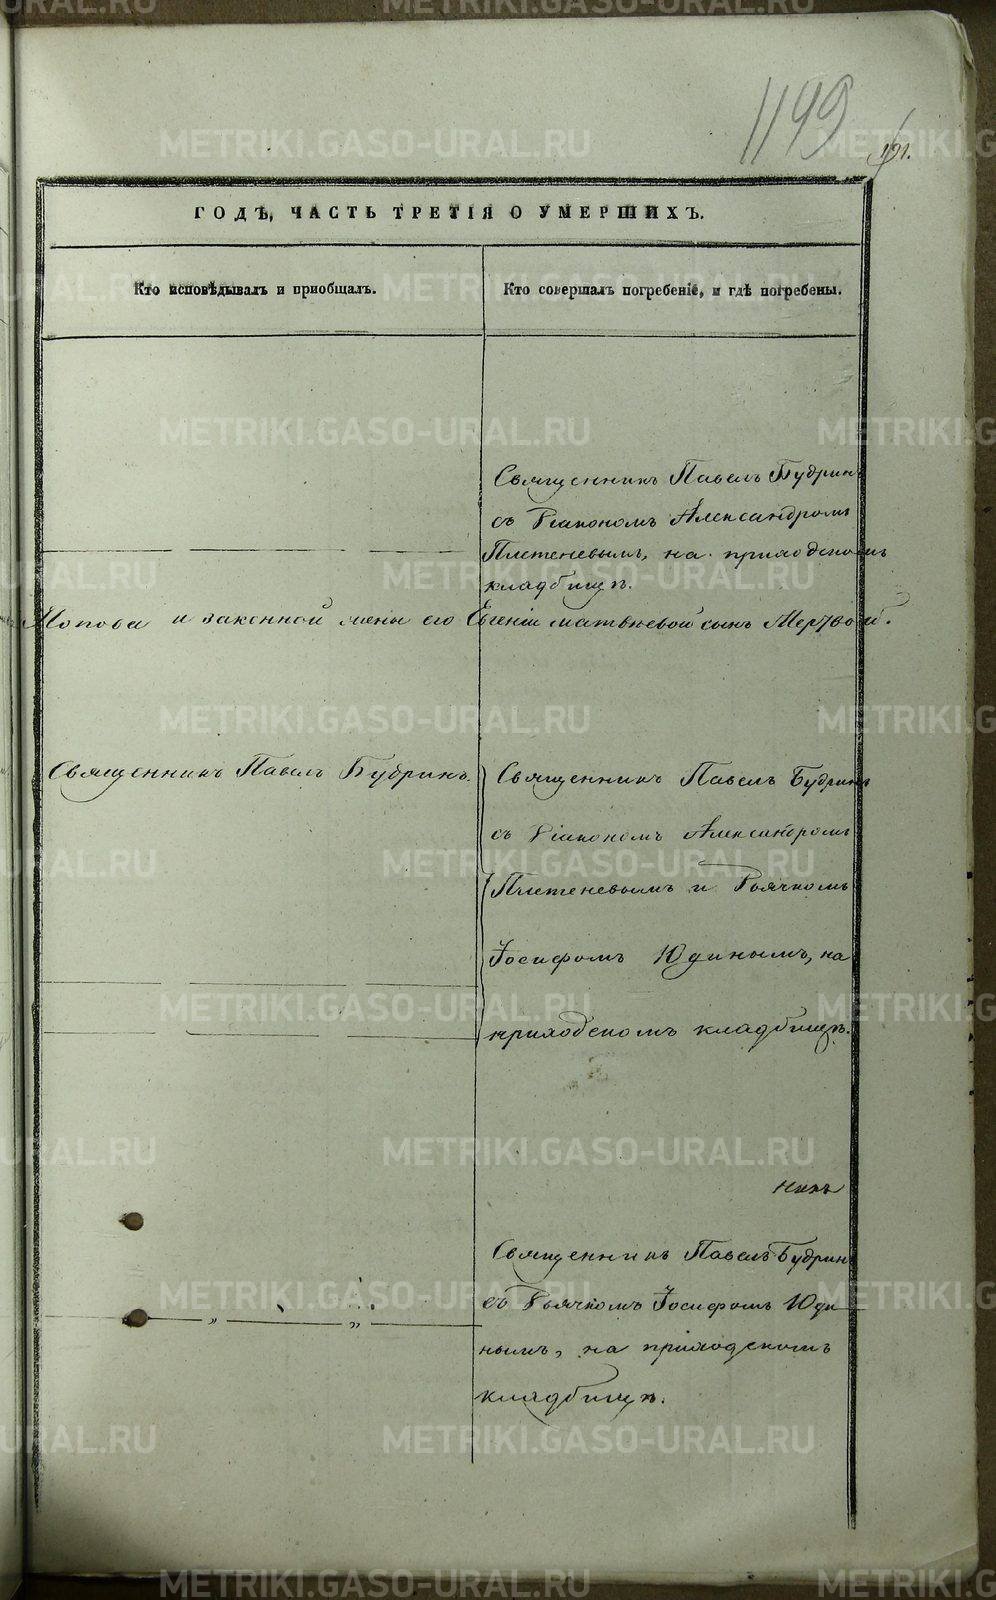 1199
191.
ГОДѢ, ЧАСТЬ ТРЕТІЯ О УМЕРШИХЪ.
Кто исповѣдывалъ и приобщалъ.
Кто совершалъ погребеніе, и гдѣ погребены.
Священникъ Павелъ Будринъ
съ Діакономъ Александромъ
Плетеневымъ, на приходскомъ
кладбищѣ.
Попова и законной жены его Евгеніи Матвѣевой сынъ Мертвой.
Священникъ Павелъ Будринъ.
Священникъ Павелъ Будринъ
съ Діакономъ Александромъ
Плетеневымъ и Дьячкомъ
Іосифомъ Юдинымъ, на
приходскомъ кладбищѣ.
Священникъ Павелъ Будринъ
съ Дьячкомъ Іосифомъ Юди
нымъ, на приходскомъ
кладбищѣ.
METRIKI.GASO-URAL.RU